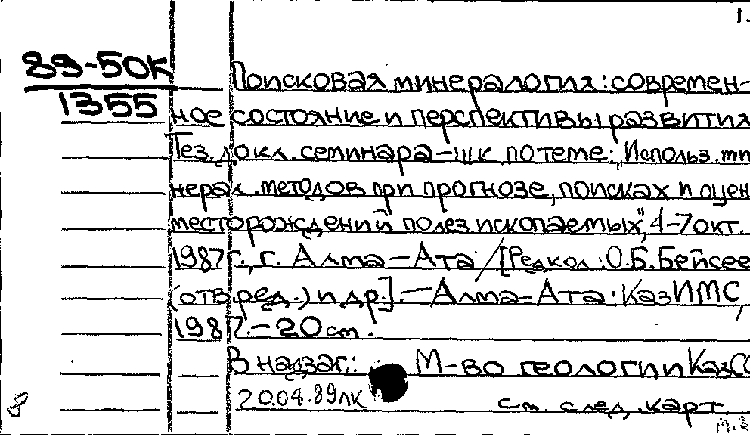 1.
89-50К
1355
Поисковая минералогия: современ-
ное состояние и перспективы развития
Тез. докл. семинара-шк. по теме: "Использ. ми
нерал. методов при прогнозе, поисках и оцен
месторождений полез. ископаемых", 4-7 окт.
1987 г., г. Алма-Ата / [Редкол.: О.Б. Бейсее
(отв. ред.) и др.]. - Алма-Ата: КазИМС,
1987. - 20 см.
В надзаг.: М-во геологии КазСС
20.04.89 лк
см. след. карт.
8